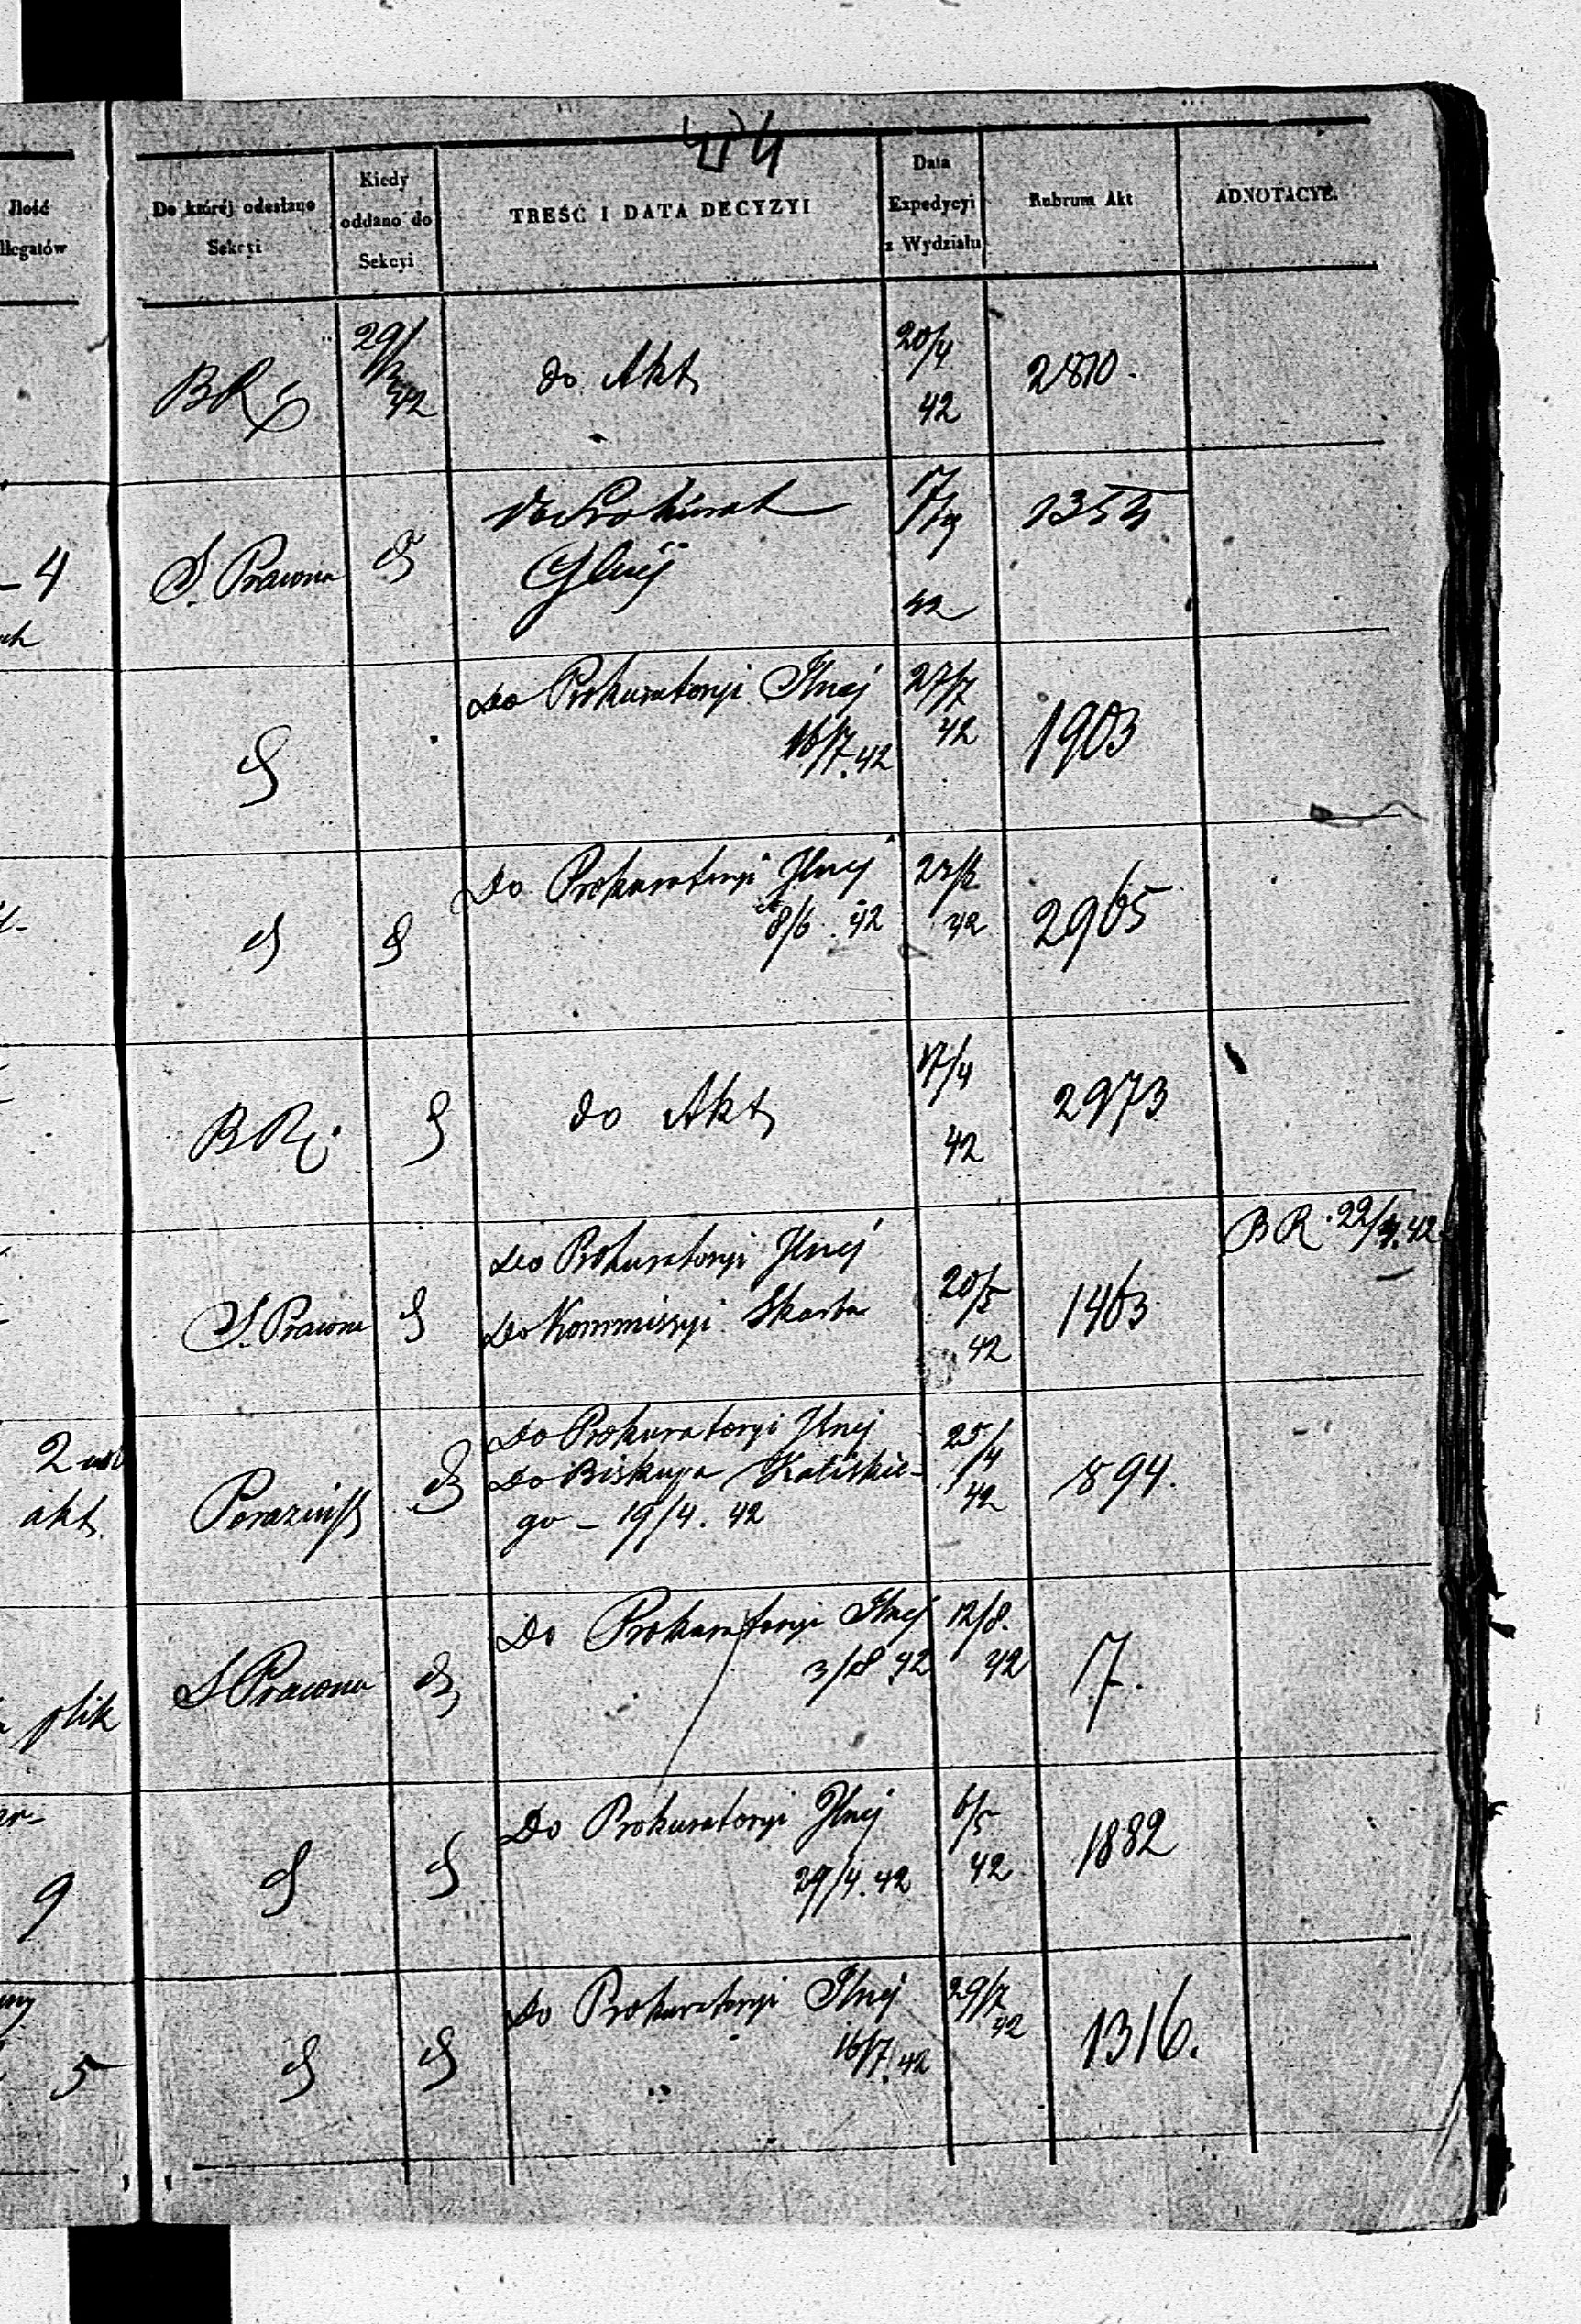 44
Ilość
llegatów
Do której odesłano
Sekcyi
Kiedy
oddano do
Sekcyi
TREŚĆ I DATA DECYZYI
Data
Expedycyi
z Wydziału
Rubrum Akt
ADNOTACYE.
BR
29/3
42
do Akt
20/4
42
2810.
4
S. Prawna
do Prokurat
Glnéj
42
1353
Do Prokuratoryi Jlnej
16/7.42
27/7
42
1903
Do Prokuratoryi Jlnej
8/6. 42
42
2965
BR
do Akt
17/4
42
2973
S. Prawna
Do Prokuratoryi Jlnej
Do Kommissyi Skarbu
20/5
42
1463
BR. 22/4.42
2
akt.
Do Prokuratoryi Jlnej
Do Biskupa Kaliskie-
go – 19/4. 42
25/4
42
894.
plik
S Prawna
Do Prokuratoryi Jlnej
3/8 42
12/8.
42
17.
9
Do Prokuratoryi Jlnej
29/4.42
6/5
42
1882
5
Do Prokuratoryi Jlnej
16/7.42
29/7
42
1316.